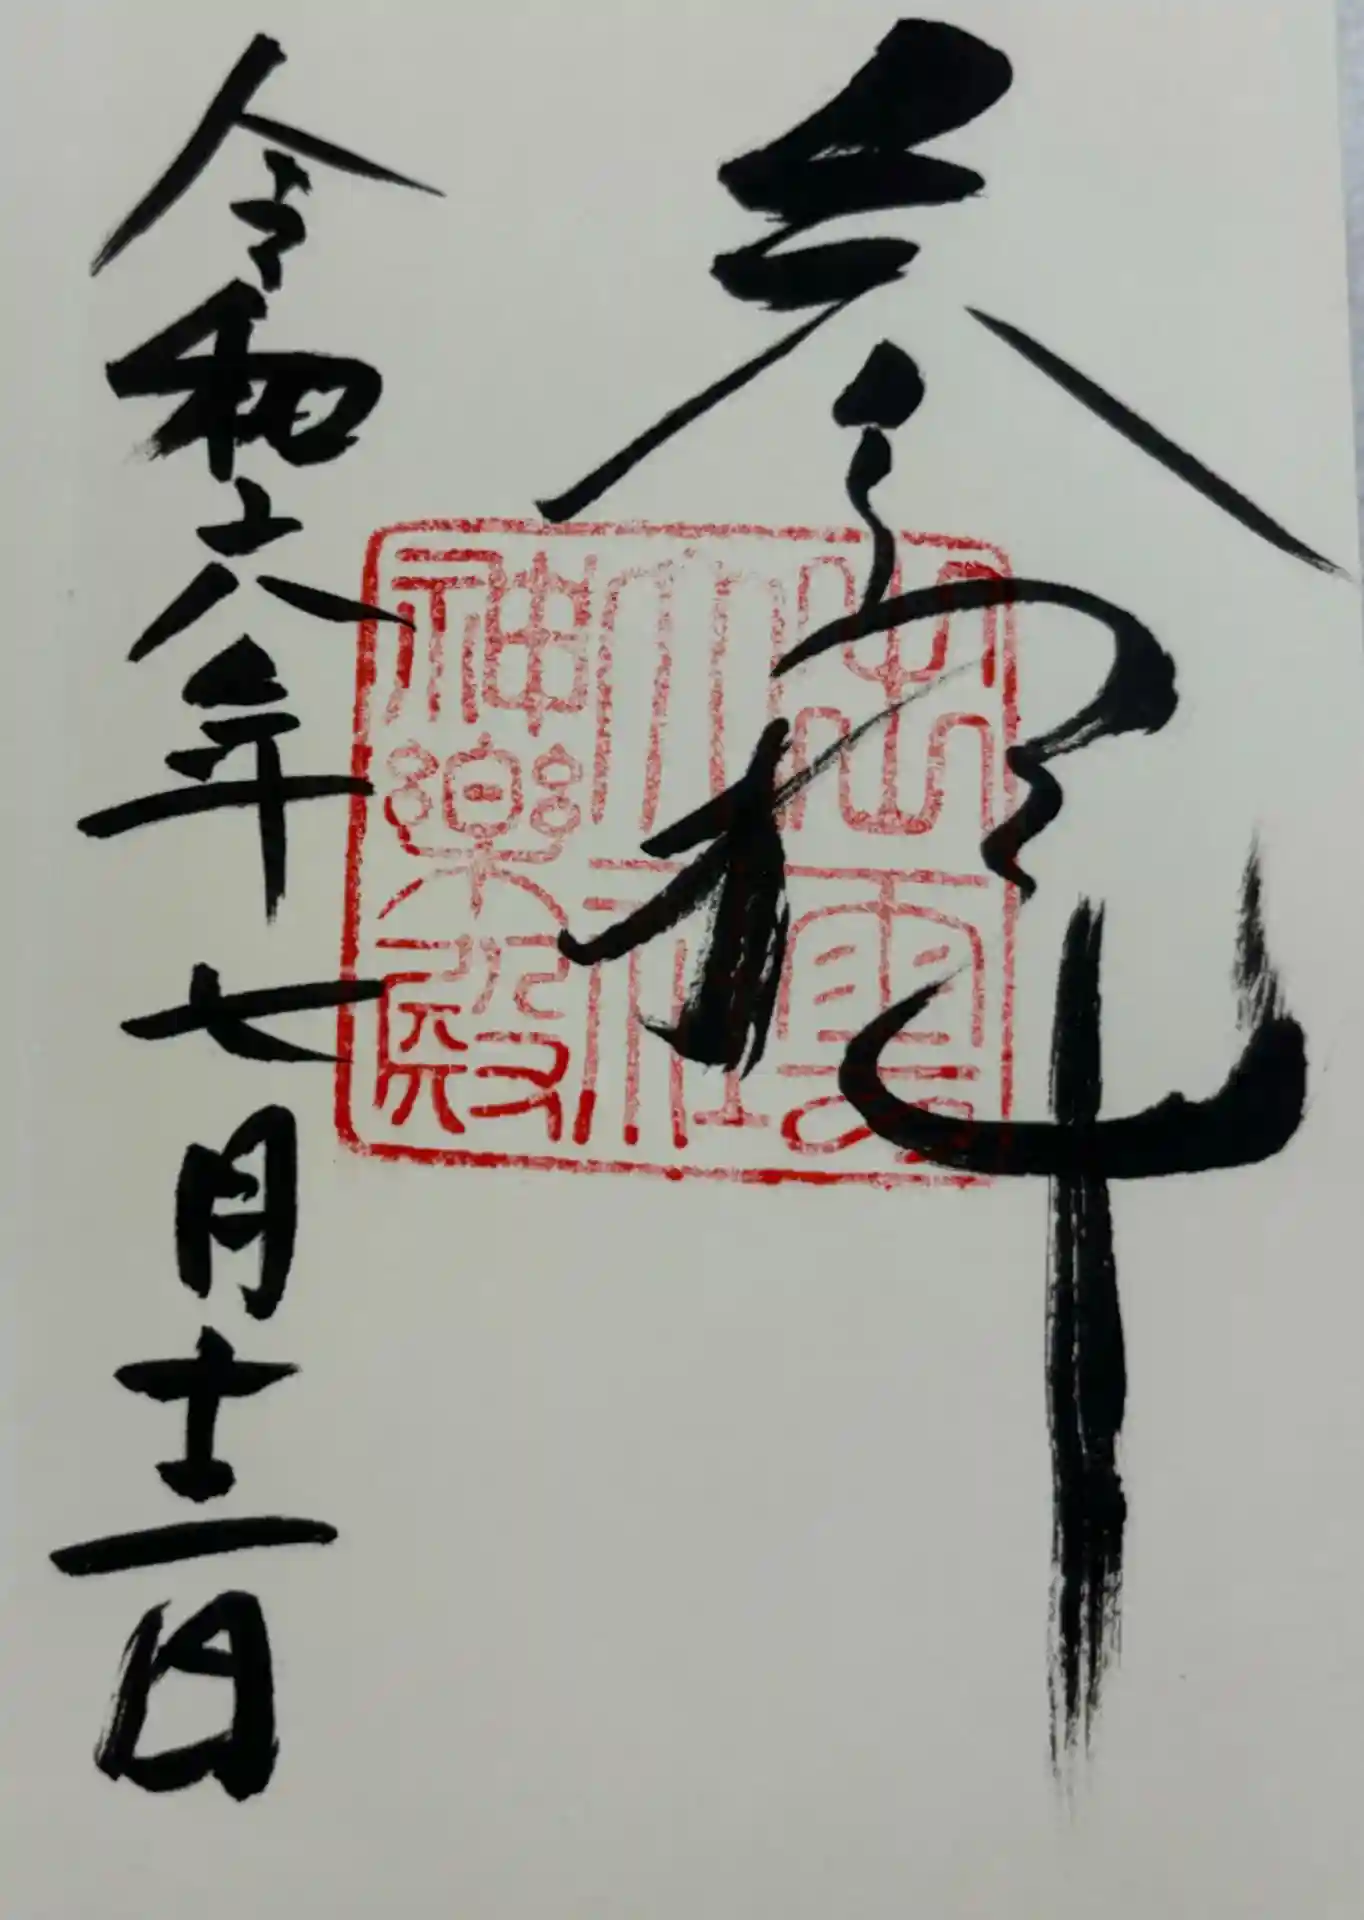 参拝
出雲
大社
神樂殿
令和六年七月十二日